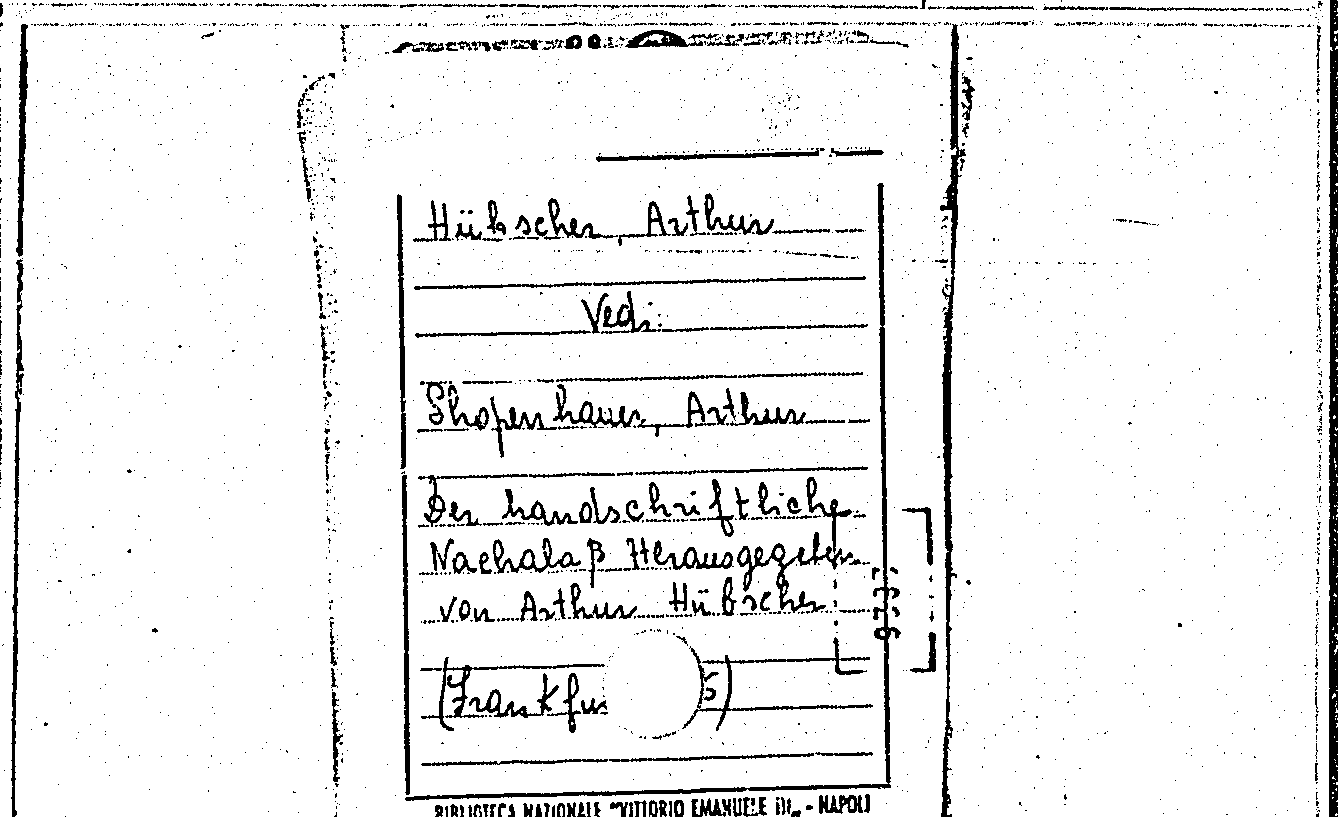 Hübscher, Arthur
Vedi:
Shopenhauer, Arthur
Der handschriftliche
Nachalaß Herausgegeben
von Arthur Hübscher
(Frankfu 5)
BIBLIOTECA NAZIONALE "VITTORIO EMANUELE III„ - NAPOLI